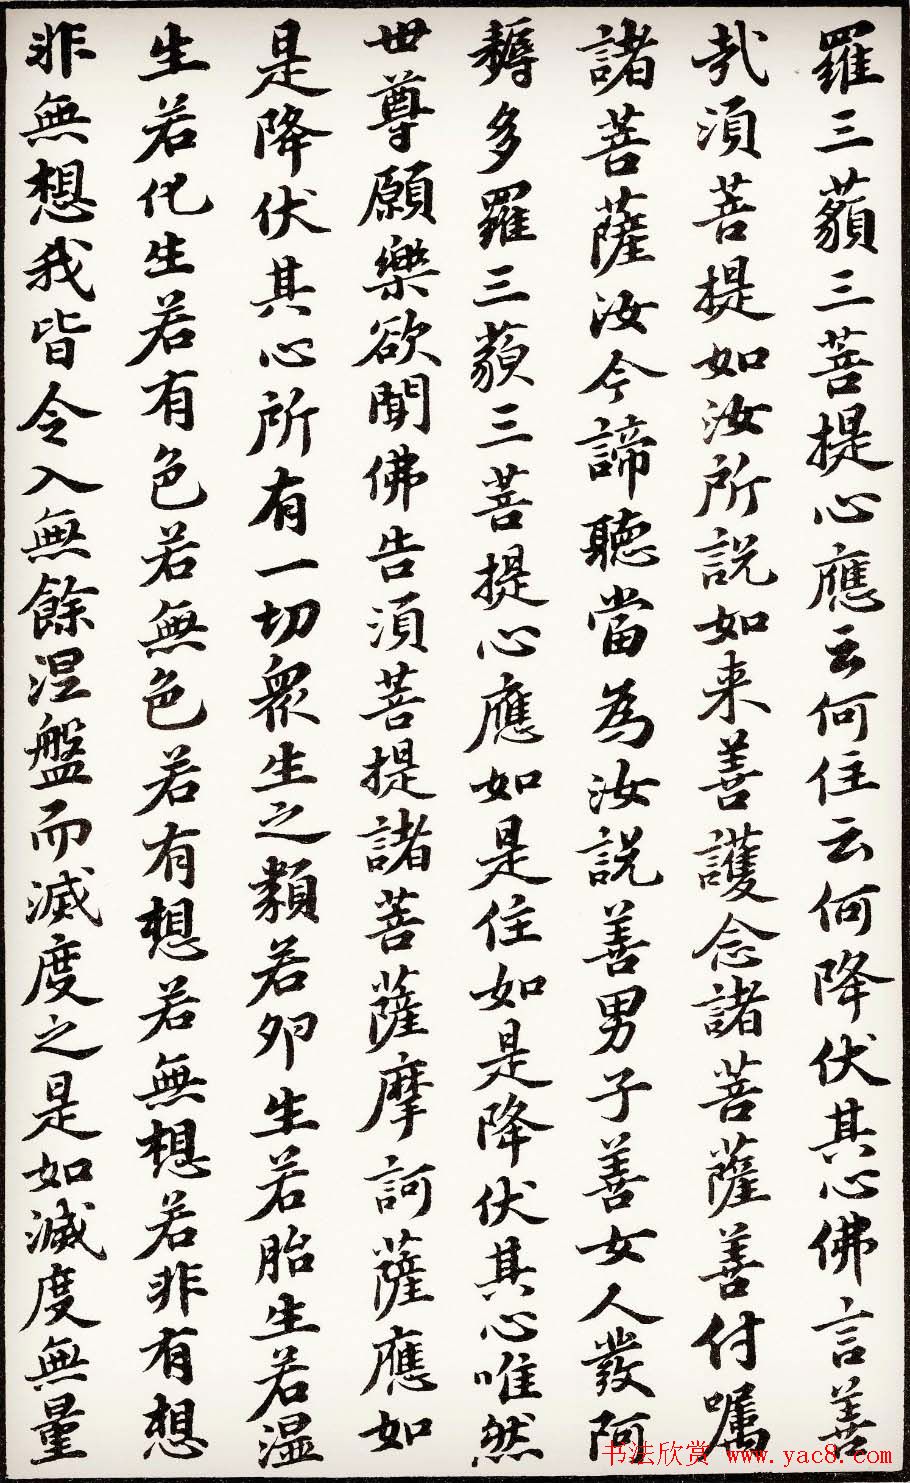 羅三藐三菩提心應云何住云何降伏其心佛言善
哉須菩提如汝所說如来善護念諸菩薩善付嘱
諸菩薩汝今諦聽當為汝説善男子善女人發阿
耨多羅三藐三菩提心應如是住如是降伏其心唯然
世尊願樂欲聞佛告須菩提諸菩薩摩訶薩應如
是降伏其心所有一切衆生之類若卵生若胎生若濕
生若化生若有色若無色若有想若無想若非有想
非無想我皆令入無餘涅盤而滅度之是如滅度無量
书法欣赏 www.yac8.com